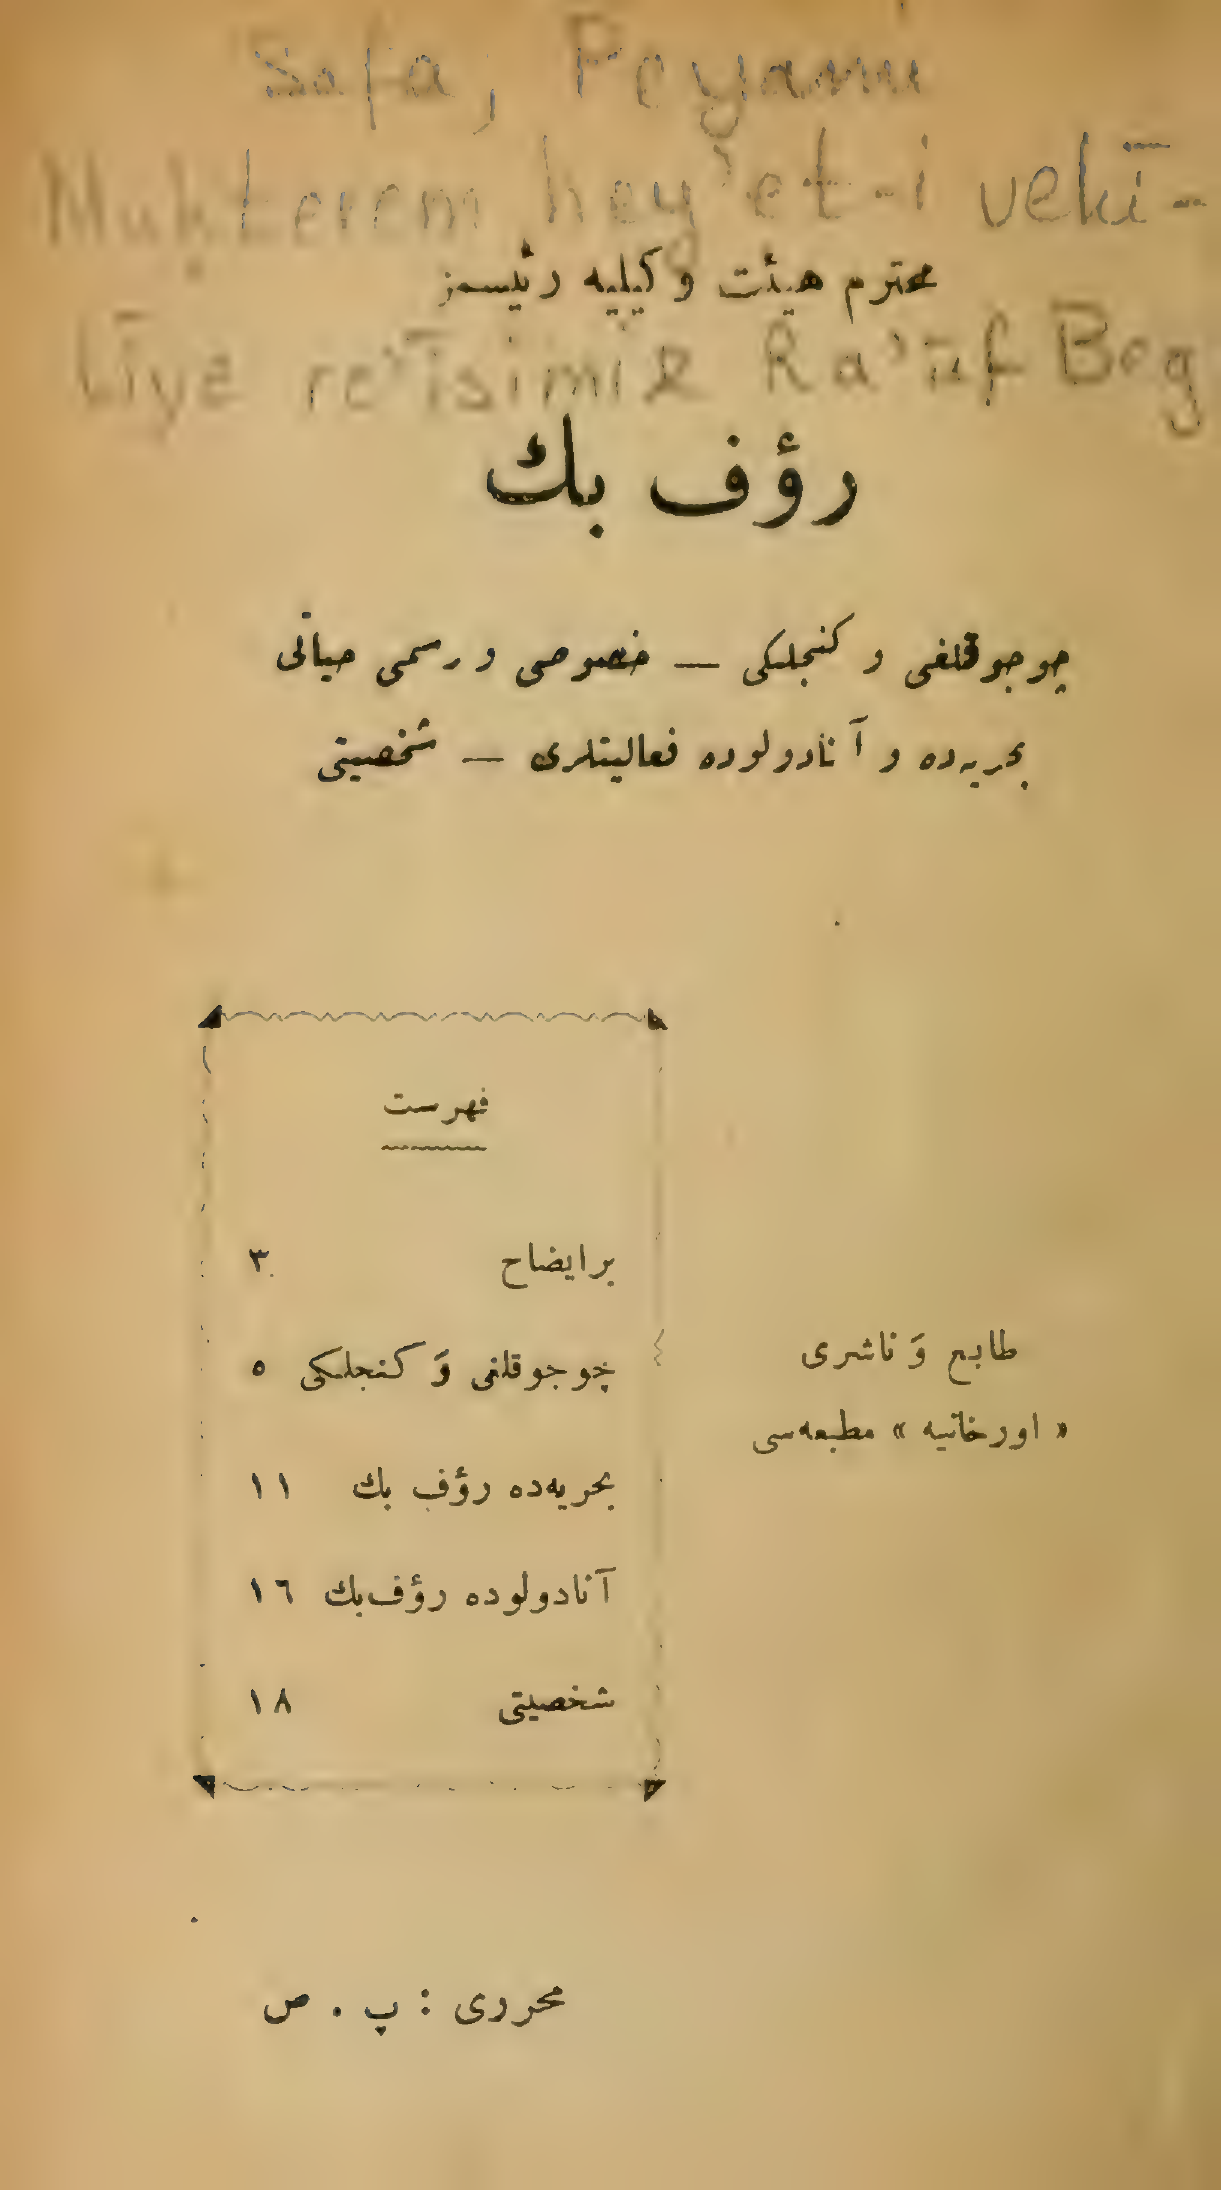 Safa, Peyami
Muḥterem hey'et-i vekī-
محترم هیئت وکیلیه رئیسمز
līye re'īsimiz Ra'ūf Beg
رؤف بك
چوجوقلغی و کنجلکی — خصوصی و رسمی حیاتی
بحریه‌ده و آنادولوده فعالیتلری — شخصیتی
فهرست
برایضاح ٣
چوجوقلغی وَ کنجلکی ٥
بحریه‌ده رؤف بك ١١
آنادولوده رؤف بك ١٦
شخصیتی ١٨
طابع وَ ناشری
« اورخانیه » مطبعه‌سی
محرری : پ . ص